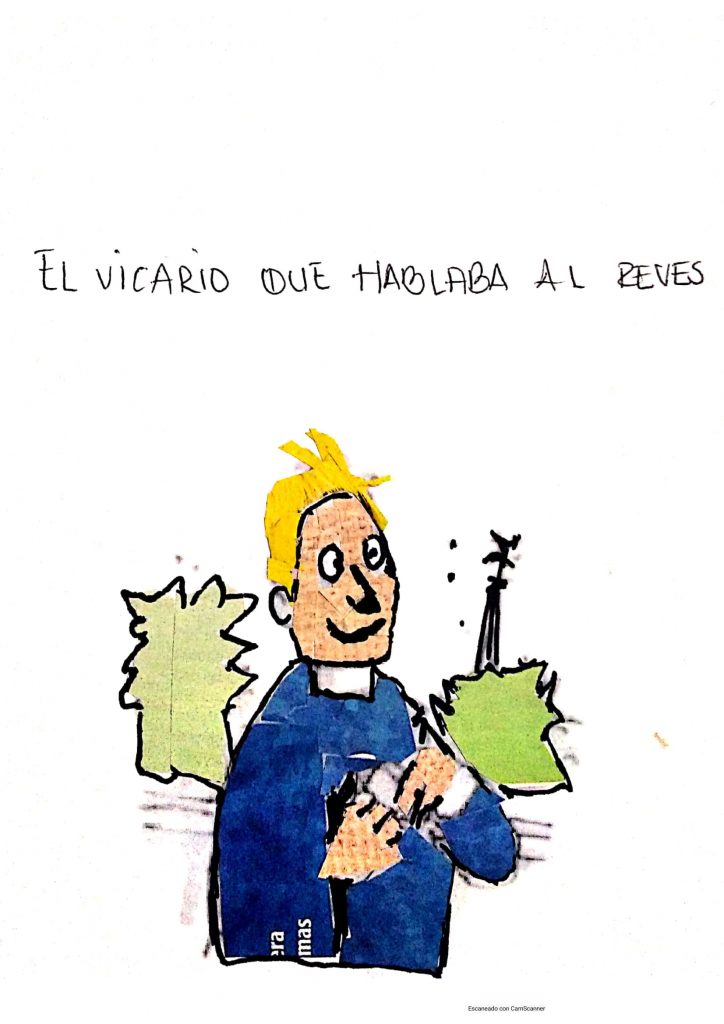 EL VICARIO QUE HABLABA AL REVES
era
mas
Escaneado con CamScanner